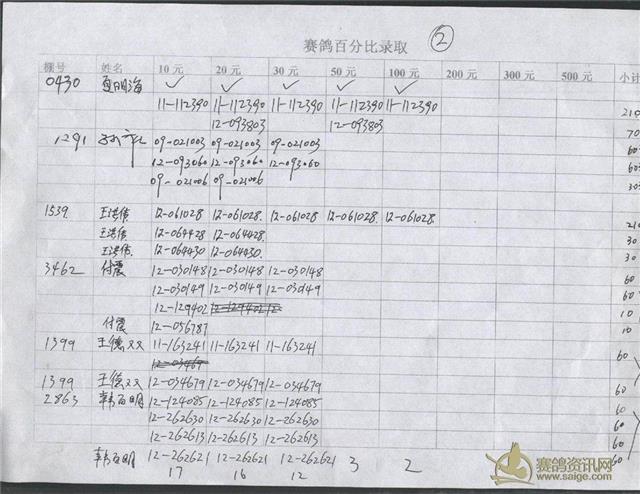 赛鸽百分比录取 ②
棚号 姓名 10元 20元 30元 50元 100元 200元 300元 500元 小计
0430 夏明海 ✓ ✓ ✓ ✓ ✓
11-112390 11-112390 11-112390 11-112390 11-112390 210
12-093803 12-093803 70
1291 09-021003 09-021003 09-021003 60
12-093060 12-093060 12-093060 60
09-021006 09-021006 30
1539 王洪伟 12-061028 12-061028 12-061028 12-061028 12-061028 210
王洪伟 12-064428 12-064428 30
王洪伟 12-064430 12-064430 30
3462 付震 12-030148 12-030148 12-030148 60
12-030149 12-030149 12-030149 60
12-129402 12-129402 12- 10
付震 12-056787 10
1399 王德双 11-163241 11-163241 11-163241 60
12-03467
1399 王德双 12-034679 12-034679 12-034679 60
2863 韩百明 12-124085 12-124085 12-124085 60
12-262630 12-262630 12-262630 60
12-262613 12-262613 12-262613 60
韩百明 12-262621 12-262621 12-262621 60
17 16 12 3 2
赛鸽资讯网
www.saige.com